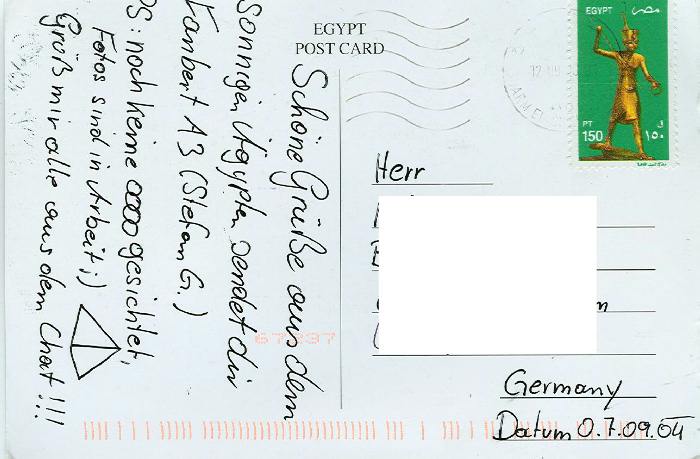 EGYPT
POST CARD
Schöne Grüße aus dem
sonnigen Ägypten sendet dir
Kanbert A3 (Stefan G.)
PS: noch keine gesichtet,
Fotos sind in Arbeit ;)
Grüß mir alle aus dem Chat !!!
EGYPT مصر
PT
150
ق
١٥٠
Herr
Germany
Datum 0.7.09.04
67237